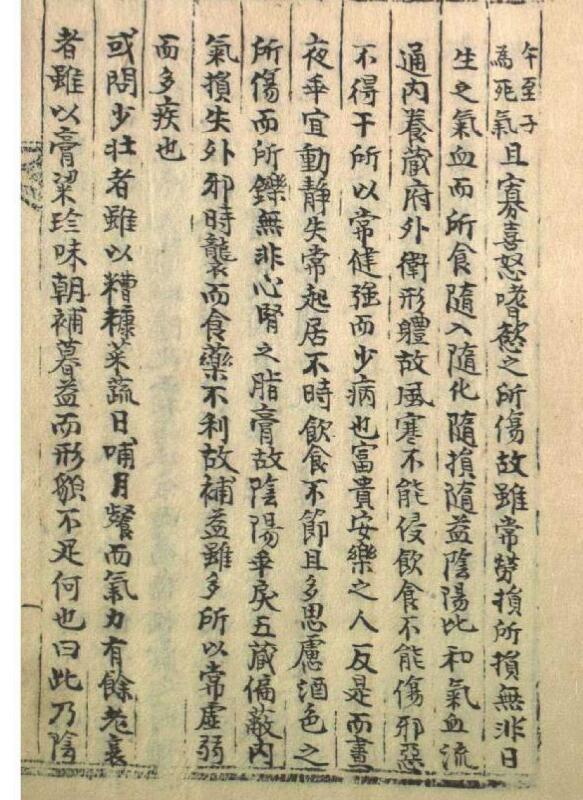 午至子
為死氣
且寡喜怒嗜慾之所傷故雖常勞損所損無非日
生之氣血而所食隨入隨化隨損隨益陰陽比和氣血流
通內養藏府外衛形體故風寒不能侵飲食不能傷邪惡
不得干所以常健強而少病也富貴安樂之人反是而晝
夜乖宜動靜失常起居不時飲食不節且多思慮酒色之
所傷而所鑠無非心腎之脂膏故陰陽乖戾五藏偏蔽內
氣損失外邪時襲而食藥不利故補益雖多所以常虛弱
而多疾也
或問少壯者雖以糟糠菜蔬日哺月餐而氣力有餘老衰
者雖以膏粱珍味朝補暮益而形貌不足何也曰此乃陰